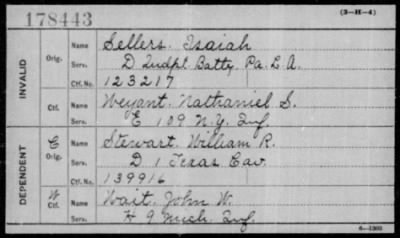 178443
(3-H-4)
INVALID
Orig.
Name Sellers, Isaiah
Serv. D Indpt. Batty. Pa. L. A.
Ctf. No. 123217
Ctf.
Name Weyant, Nathaniel S.
Serv. E 109 N.Y. Inf.
DEPENDENT
C
Orig.
Name Stewart, William R.
Serv. D 1 Texas Cav.
Ctf. No. 139916
W
Ctf.
Name Wait, John W.
Serv. H 9 Mich. Inf.
6-1303